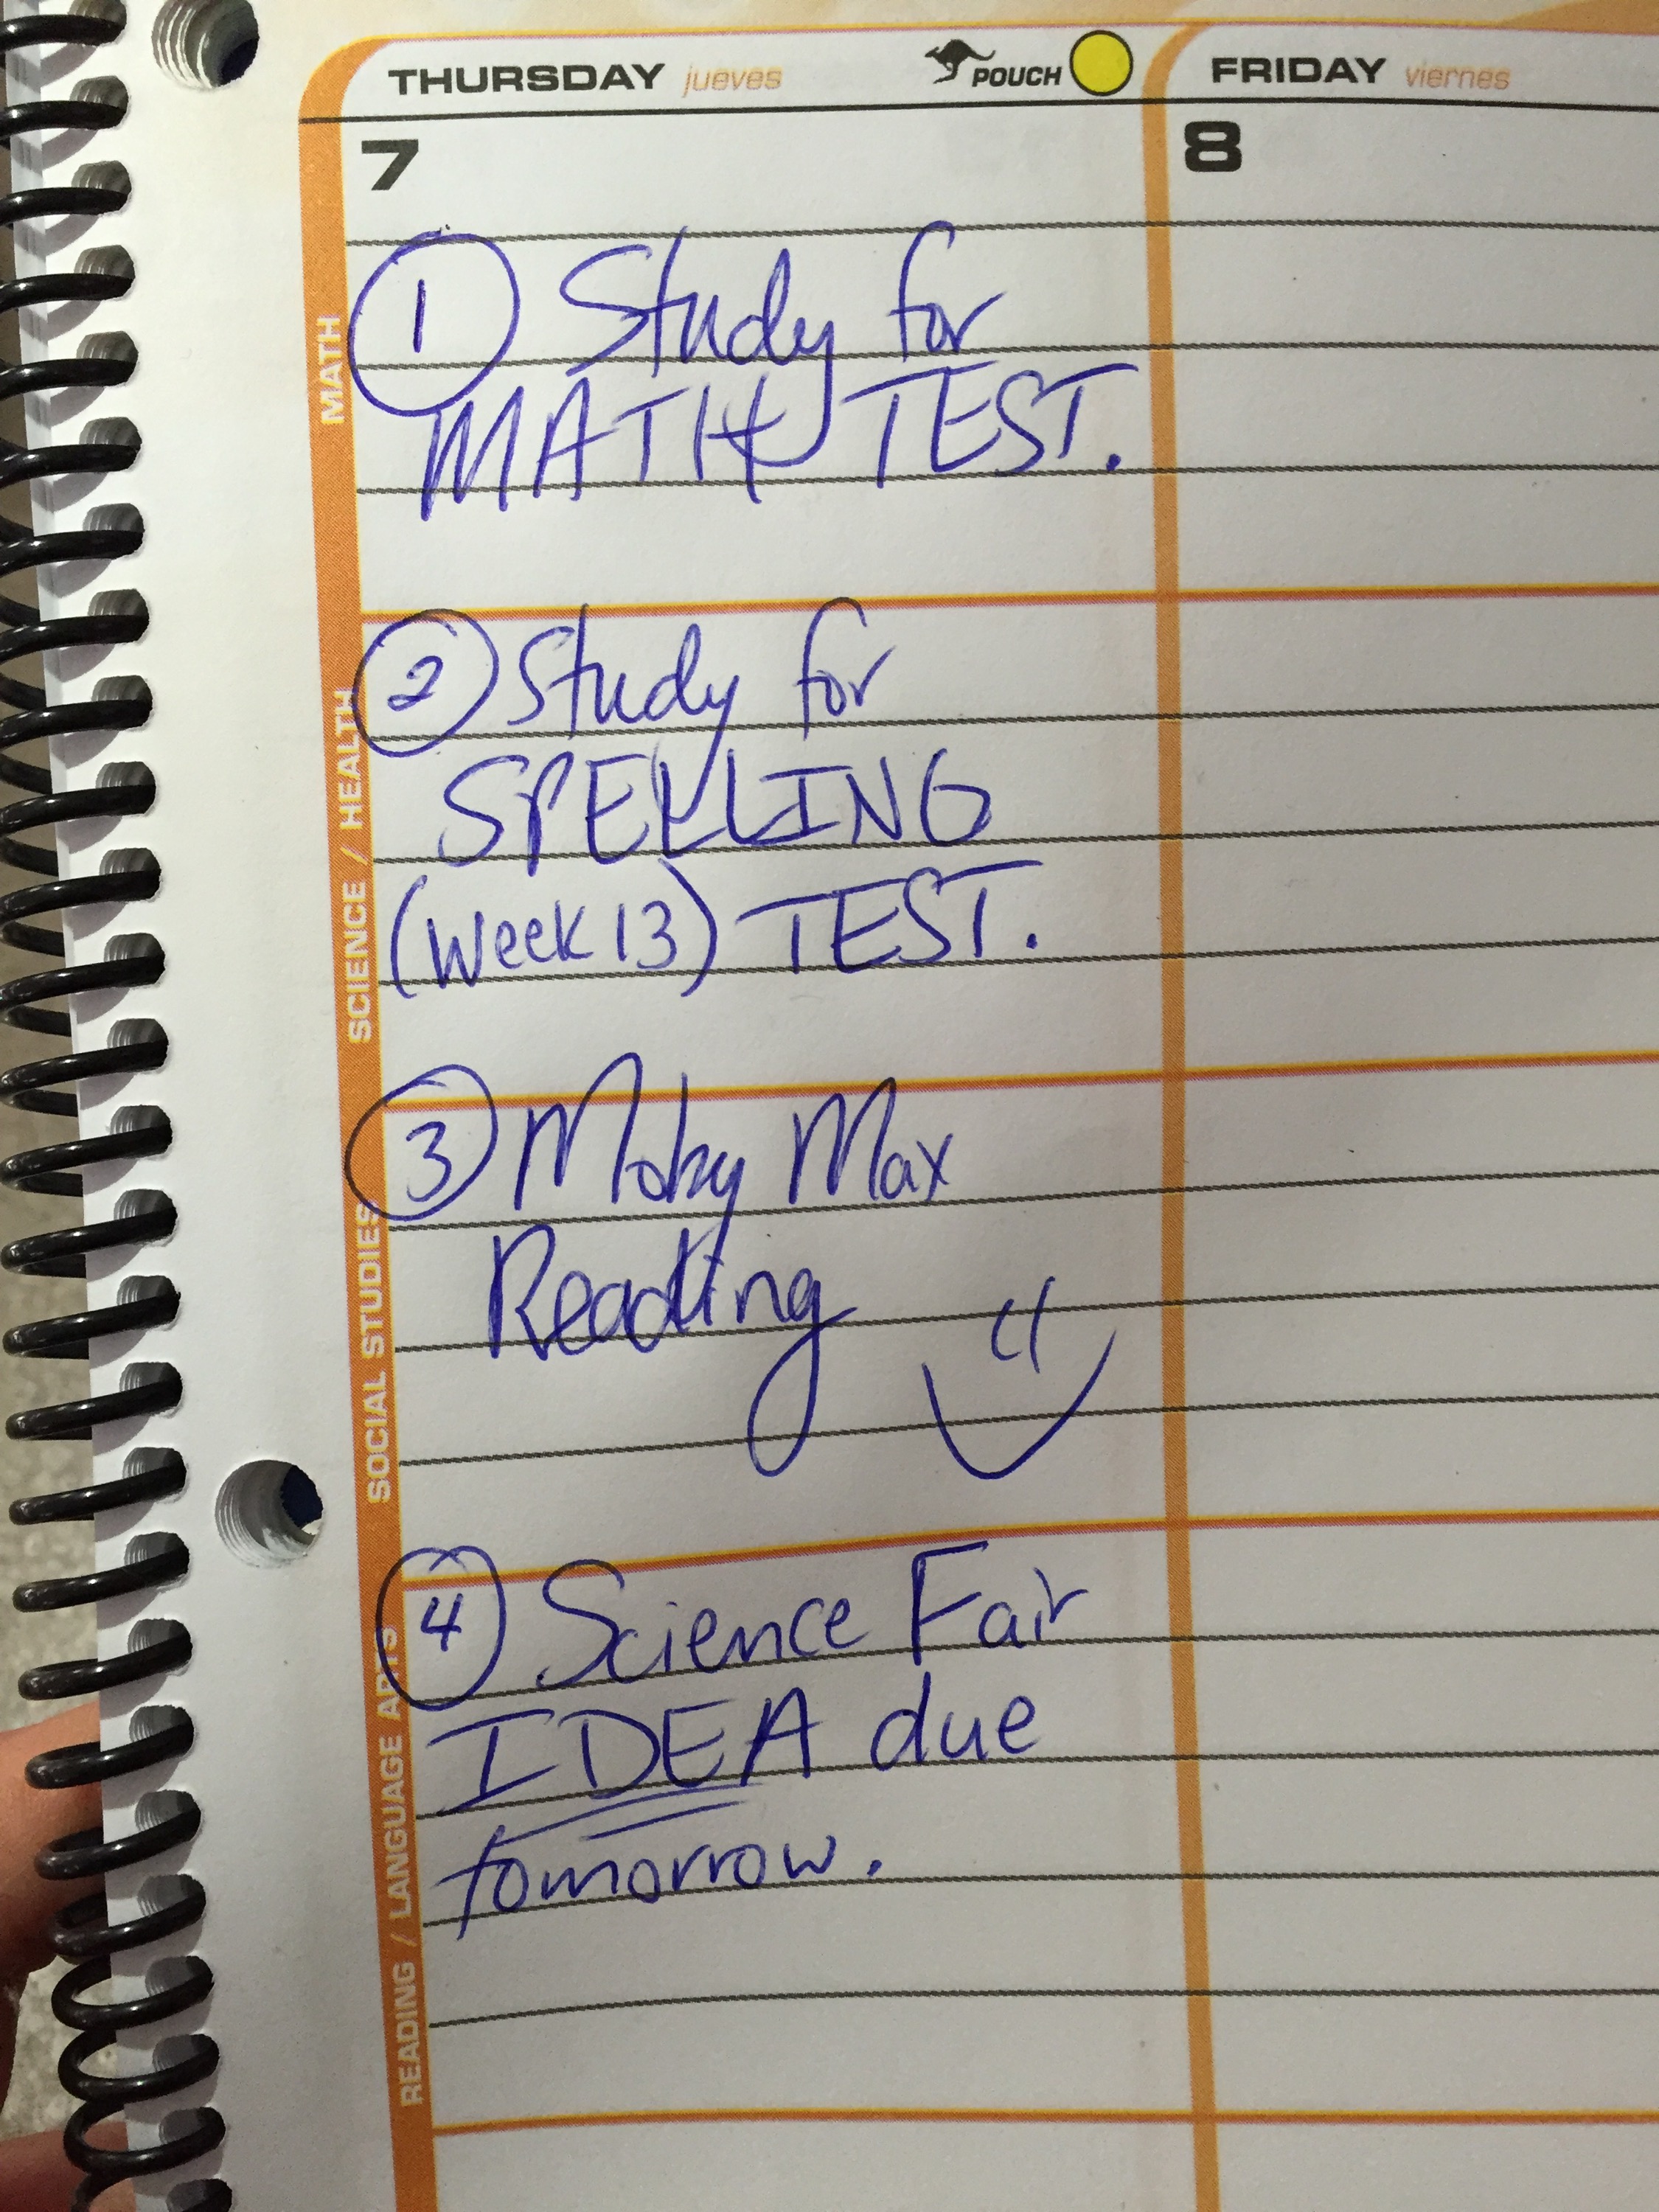 THURSDAY jueves POUCH
FRIDAY viernes
7
8
MATH
1 Study for
MATH TEST.
SCIENCE / HEALTH
2 Study for
SPELLING
(Week 13) TEST.
SOCIAL STUDIES
3 Moby Max
Reading
READING / LANGUAGE ARTS
4 Science Fair
IDEA due
tomorrow.